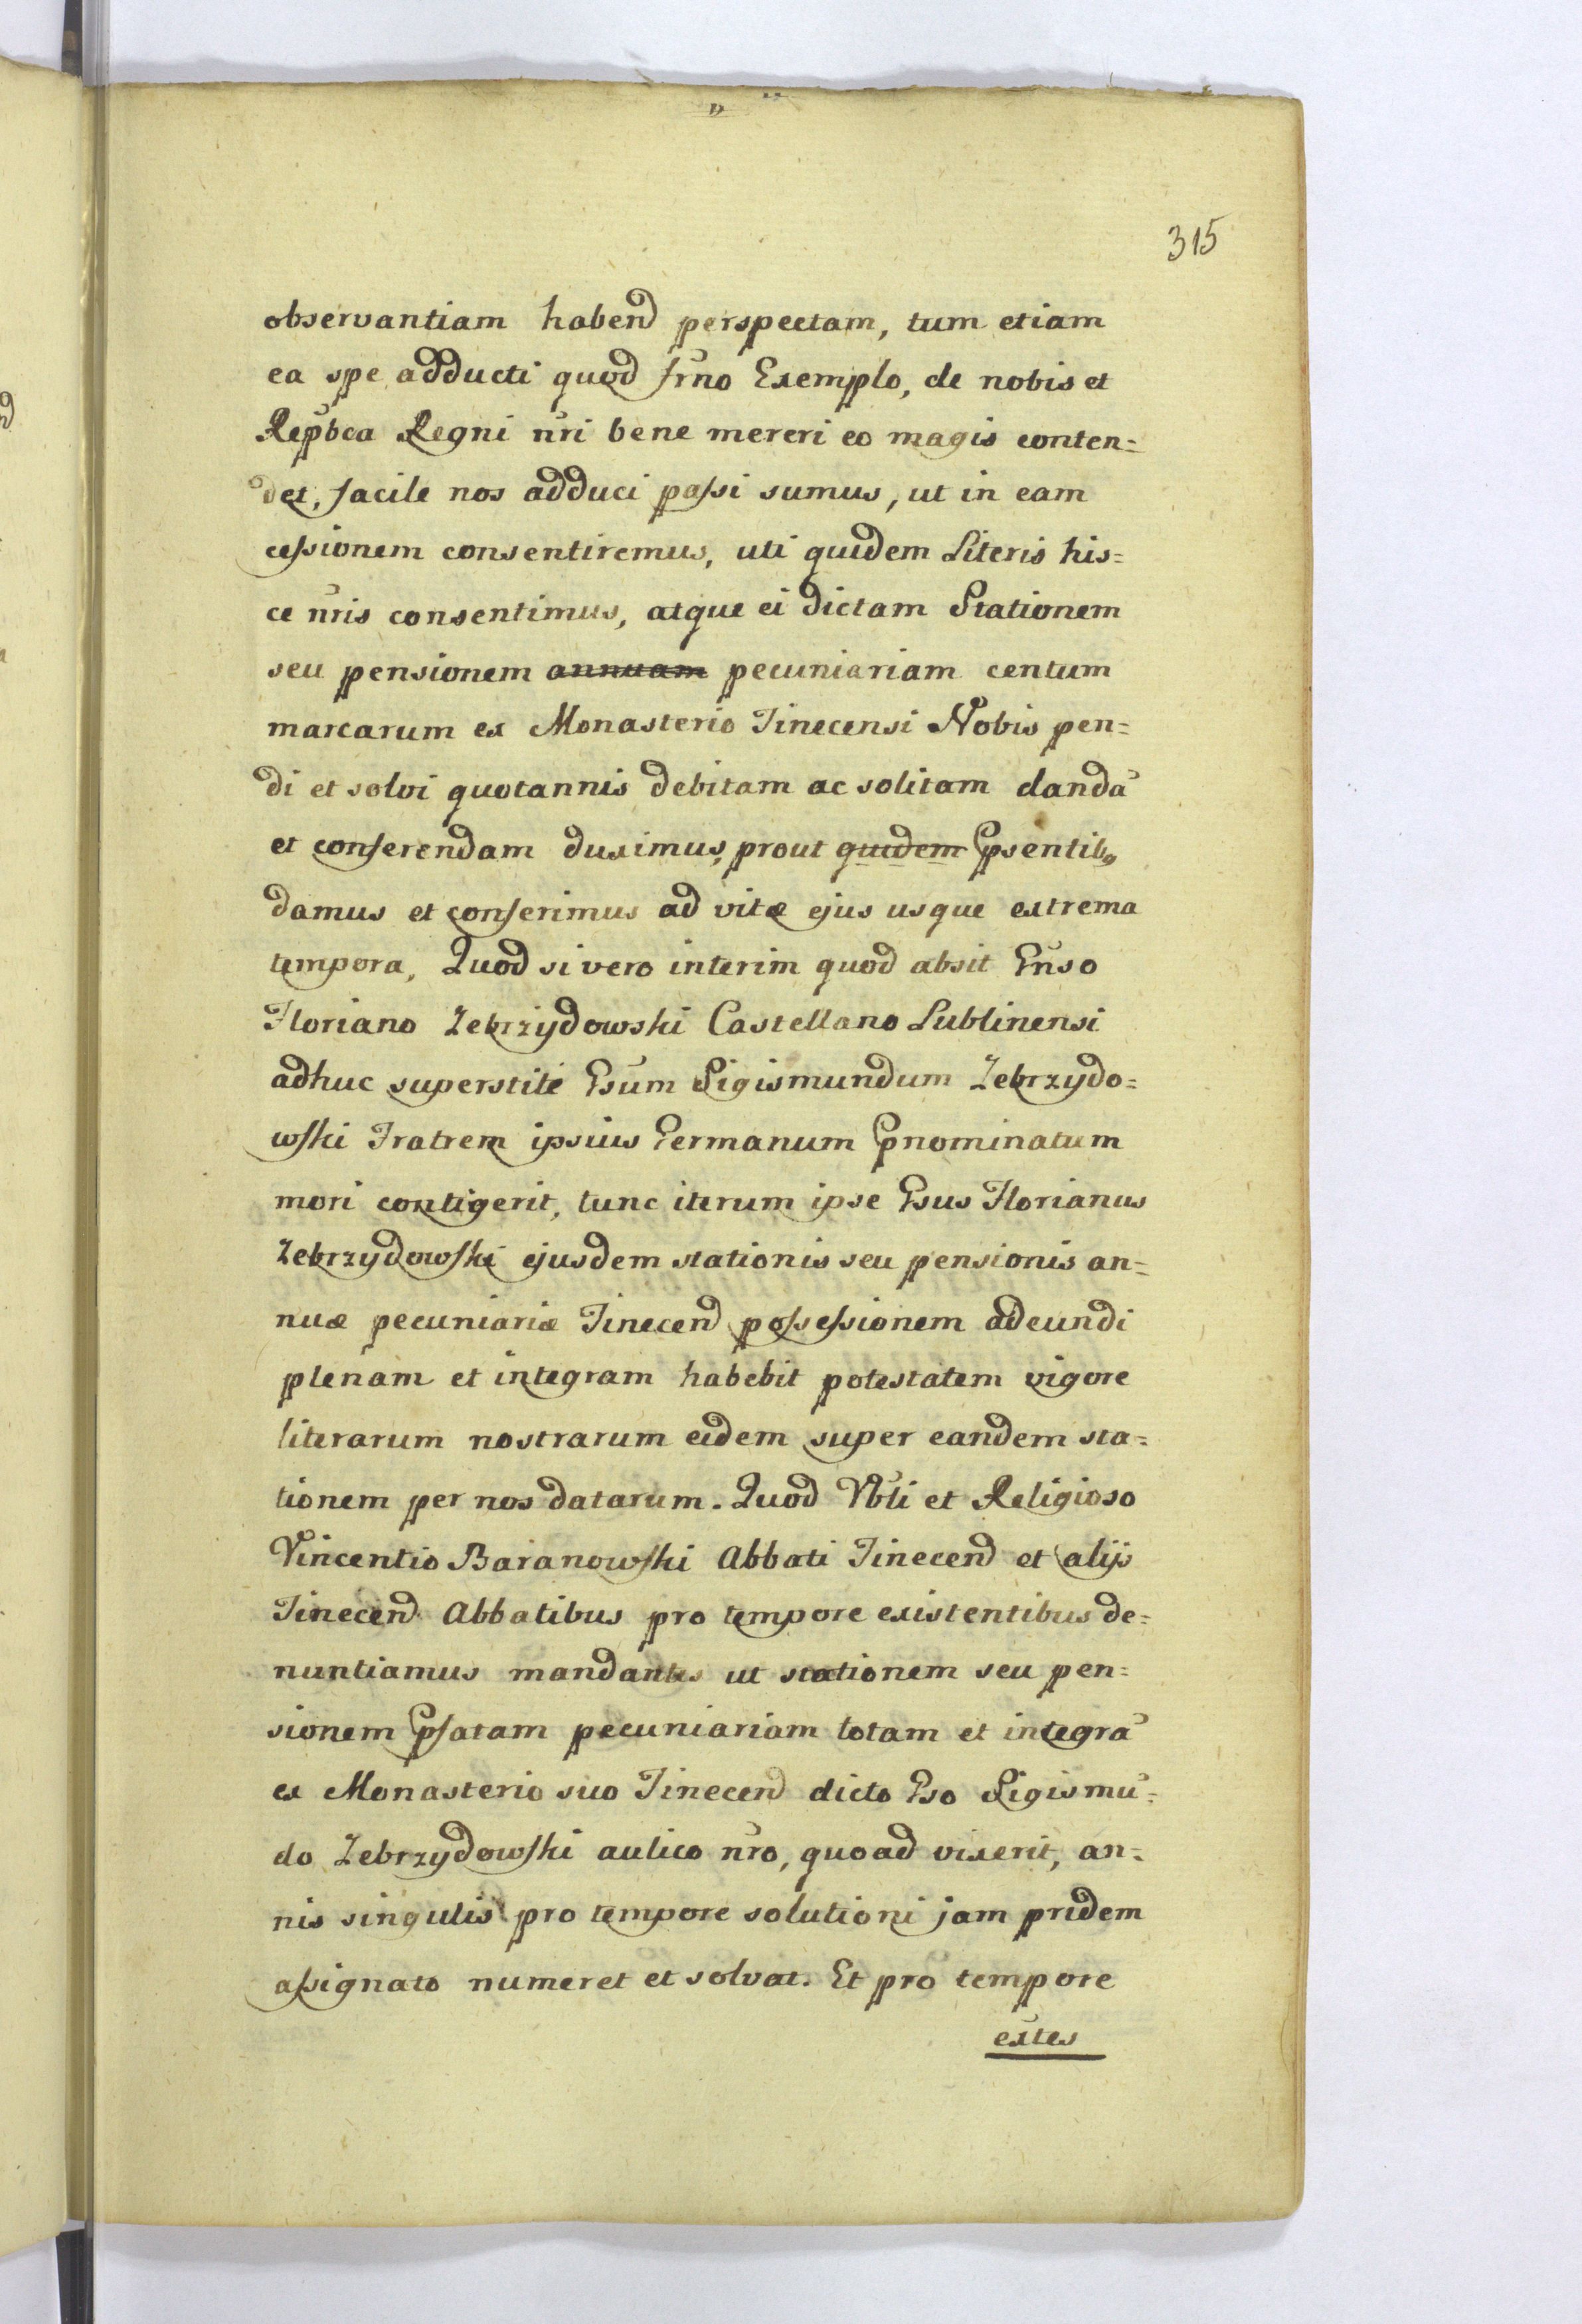 315
observantiam habend perspectam, tum etiam
ea spe adducti quod frno Exemplo, de nobis et
Repbca Regni nri bene mereri eo magis conten=
det, facile nos adduci passi sumus, ut in eam
cessionem consentiremus, uti quidem Literis his=
ce nris consentimus, atque ei dictam Stationem
seu pensionem annuam pecuniariam centum
marcarum ex Monasterio Tinecensi Nobis pen=
di et solvi quotannis debitam ac solitam dandã
et conferendam duximus, prout quidem psentib9
damus et conferimus ad vitæ ejus usque extrema
tempora, Quod si vero interim quod absit Gnso
Floriano Zebrzydowski Castellano Lublinensi
adhuc superstite Gsum Sigismundum Zebrzydo=
wski Fratrem ipsius Germanum pnominatum
mori contigerit, tunc iterum ipse Gsus Florianus
Zebrzydowski ejusdem stationis seu pensionis an=
nuæ pecuniariæ Tinecend possessionem adeundi
plenam et integram habebit potestatem vigore
literarum nostrarum eidem super eandem sta=
tionem per nos datarum. Quod Vbli et Religioso
Vincentio Baranowski Abbati Tinecend et alijs
Tinecend Abbatibus pro tempore existentibus de=
nuntiamus mandantes ut stationem seu pen=
sionem pfatam pecuniariam totam et integrã
ex Monasterio suo Tinecend dicto Gso Sigismũ=
do Zebrzydowski aulico nro, quoad vixerit, an=
nis singulis pro tempore solutioni jam pridem
assignato numeret et solvat. Et pro tempore
extes